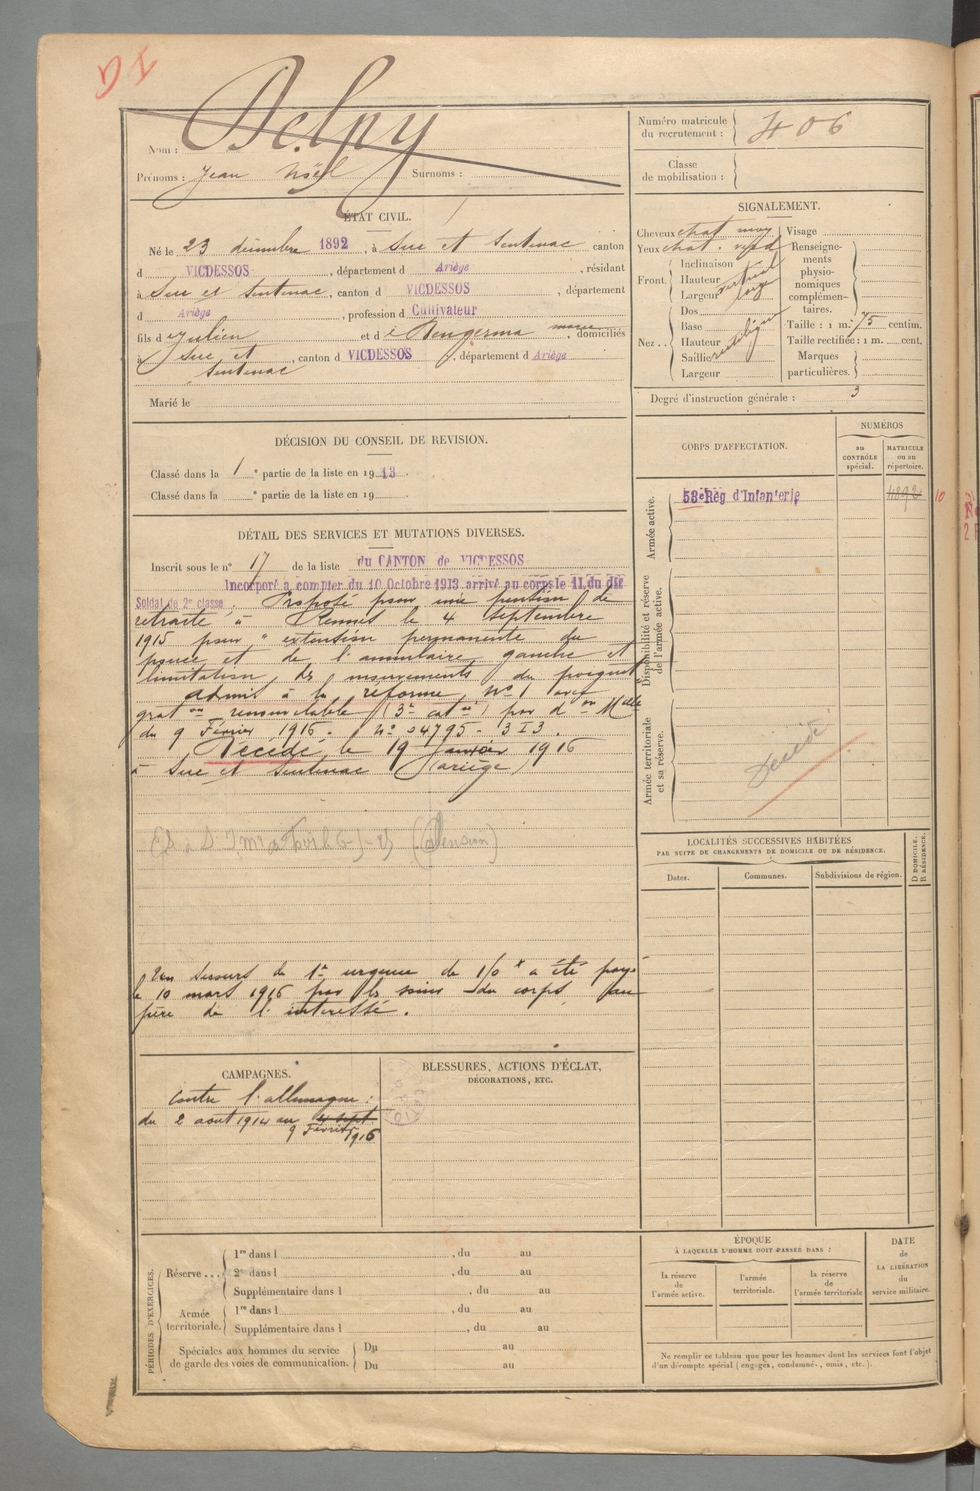 Nom : Delpy
Prénoms : Jean Noël Surnoms :
Numéro matricule du recrutement : 406
Classe de mobilisation :
ÉTAT CIVIL.
Né le 23 décembre 1892, à Suc et Sentenac canton
d VICDESSOS, département d Ariège, résidant
à Suc et Sentenac, canton d VICDESSOS, département
d Ariège, profession d Cultivateur
fils d e Julien et d e Dengerma marie, domiciliés
à Suc et Sentenac, canton d VICDESSOS, département d Ariège
Marié le
SIGNALEMENT.
Cheveux chat moy Visage
Yeux chat. verd Renseignements physionomiques complémentaires.
Front. Inclinaison vertical
Hauteur
Largeur large
Nez.. Dos rectiligne
Base
Hauteur
Saillie
Largeur
Taille : 1 m. 75 centim.
Taille rectifiée : 1 m. cent.
Marques particulières.
Degré d'instruction générale : 3
DÉCISION DU CONSEIL DE REVISION.
Classé dans la 1e partie de la liste en 1913.
Classé dans la e partie de la liste en 19
DÉTAIL DES SERVICES ET MUTATIONS DIVERSES.
Inscrit sous le n° 17 de la liste du CANTON de VICDESSOS
Incorporé a compter du 10 Octobre 1913. arrivé au corps le 11 du dit
Soldat de 2e classe. Proposé pour une pension de
retraite à Rennes le 4 Septembre
1915 pour " extension permanente du
pouce et de l'annulaire gauche et
limitation des mouvements du poignet
admis à la réforme n° 1 avec
grat on renouvelable (3e cat ie) par d on Mlle
du 9 Février 1916. N° 04795 - 3 I 3.
Décédé le 19 janvier 1916
à Suc et Sentenac (ariège)
Un secours de 1re urgence de 150 f a été payé
le 10 mars 1916 par les soins du corps, au
père de l'intéressé.
CORPS D'AFFECTATION.
NUMÉROS
au CONTRÔLE spécial.
MATRICULE ou au répertoire.
Armée active.
53e Rég d'Infanterie 4892 10
Disponibilité et réserve de l'armée active.
Armée territoriale et sa réserve.
Décédé
LOCALITÉS SUCCESSIVES HABITÉES
PAR SUITE DE CHANGEMENTS DE DOMICILE OU DE RÉSIDENCE.
Dates. Communes. Subdivisions de région. D DOMICILE. R RÉSIDENCE.
CAMPAGNES.
Contre l'allemagne :
du 2 aout 1914 au 4 sept
9 Février 1916
BLESSURES, ACTIONS D'ÉCLAT,
DÉCORATIONS, ETC.
PÉRIODES D'EXERCICES.
Réserve... 1re dans l , du au
2e dans l , du au
Supplémentaire dans l , du au
Armée territoriale. 1re dans l , du au
Supplémentaire dans l , du au
Spéciales aux hommes du service de garde des voies de communication. Du au
Du au
ÉPOQUE
À LAQUELLE L'HOMME DOIT PASSER DANS :
la réserve de l'armée active.
l'armée territoriale.
la réserve de l'armée territoriale
DATE de LA LIBÉRATION du service militaire.
Ne remplir ce tableau que pour les hommes dont les services font l'objet
d'un décompte spécial (engagés, condamnés, omis, etc.).